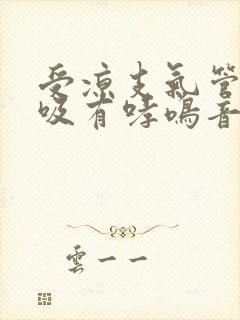 受凉支氣管
吸有哮鳴音
雲一一